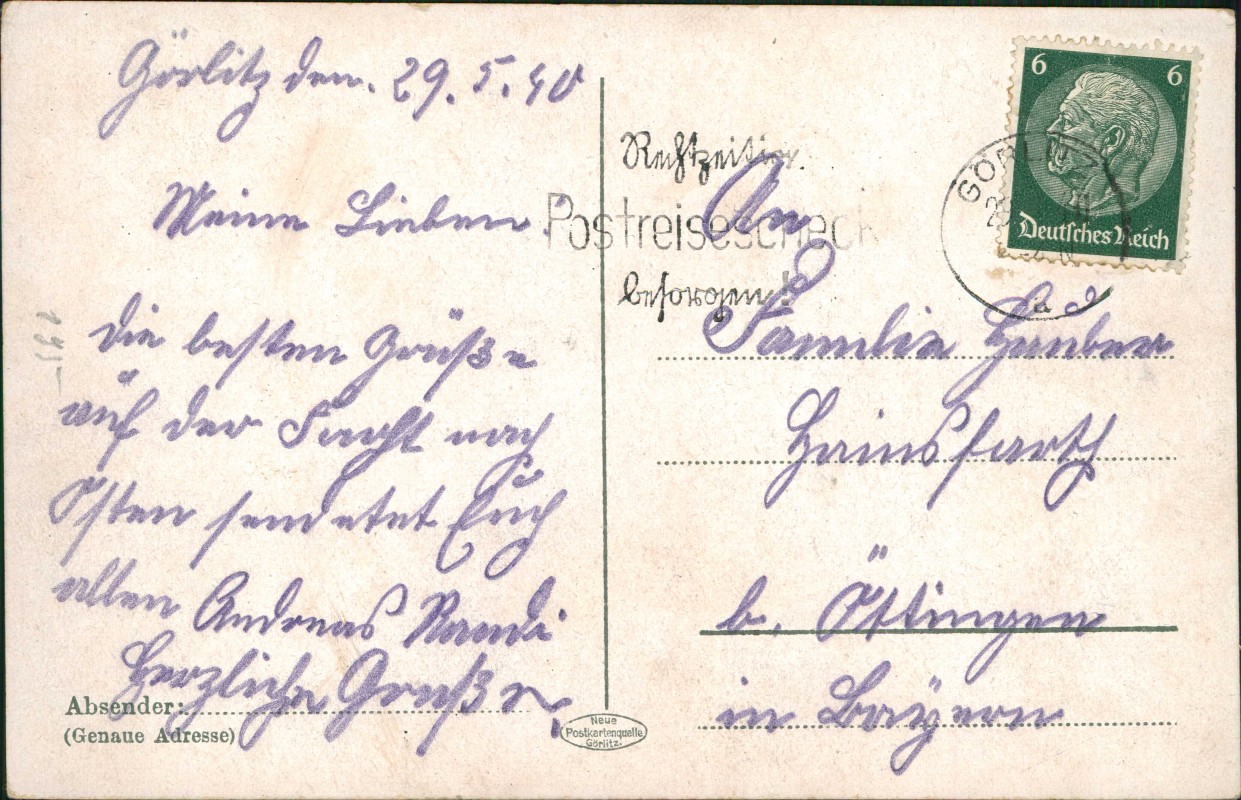 Görlitz den. 29.5.40
Meine Lieben!
die besten Grüße
auf der Facht nach
Osten sendetet Euch
allen Andreas
Herzliche Grüße
Absender:
(Genaue Adresse)
Neue
Postkartenquelle
Görlitz.
Rechtzeitig
Postreisescheck
besorgen!
6 6
Deutsches Reich
GÖRLITZ
a
An
Familie
Hainsfarth
b. Öttingen
in Bayern